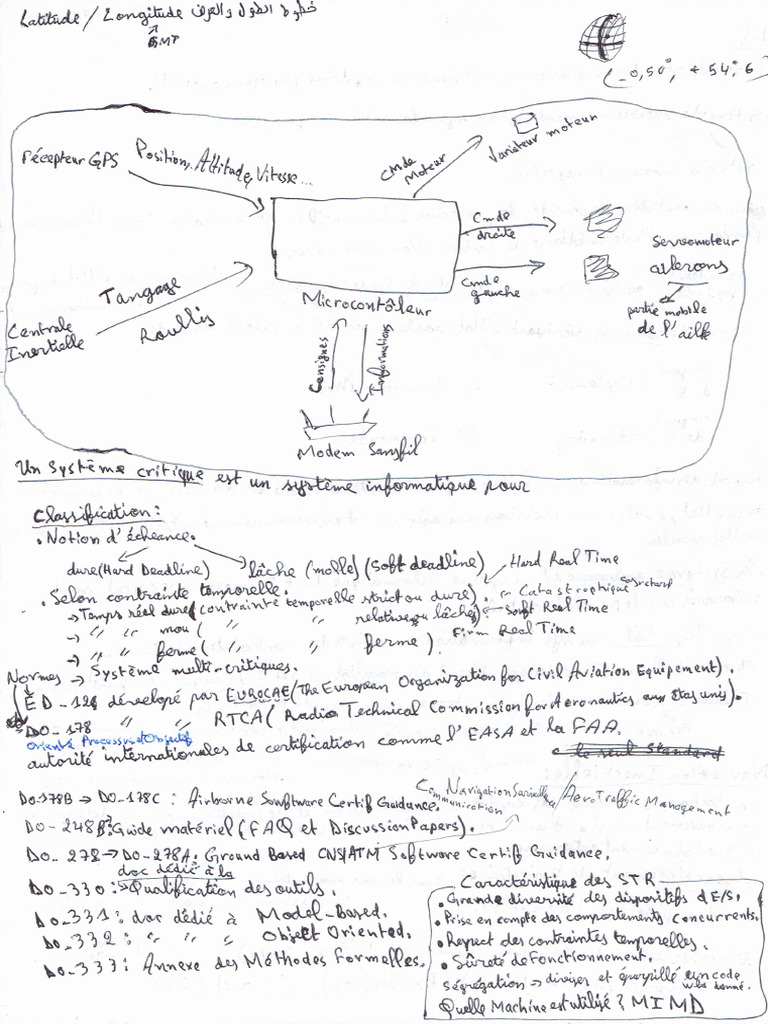 Latitude / Longitude خطوط الطول والعرض
GMT
(-0,50°, + 54°, 6)
Récepteur GPS
Position, Attitude, Vitesse...
Cmde Moteur
Variateur moteur
Cmde droite
Cmde gauche
Servomoteur
ailerons
partie mobile
de l'aile
Microcontôleur
Centrale
Inertielle
Tangage
Roullis
Consignes
Informations
Modem Sansfil
Un Système critique est un système informatique pour
Classification:
• Notion d'échéance.
dure (Hard Deadline) lâche (molle) (Soft deadline)
• Selon contrainte temporelle.
→ Temps réel dure (contrainte temporelle strict ou dure). Hard Real Time
Catastrophique
→ " " mou ( " " relative ou lâche) Soft Real Time
→ " " ferme ( " " ferme). Firm Real Time
→ Système multi-critiques.
Normes
ED-12 développé par EUROCAE (The European Organization for Civil Aviation Equipement).
DO-178 " " RTCA (Radio Technical Commission for Aeronautics aux Etas unis).
Orienté Processus et Objectif
autorité internationales de certification comme l'EASA et la FAA.
le seul Standard
Communication Navigation / Aero Traffic Management
DO-178B → DO-178C : Airborne Sowftware Certif Guidance.
DO-248B: Guide matériel (FAQ et Discussion Papers).
DO-278 → DO-278A. Ground Based CNS/ATM Software Certif Guidance.
doc dédié à la
DO-330: Qualification des outils.
DO-331: doc dédié à Model-Based.
DO-332: " " " Object Oriented.
DO-333: Annexe des Méthodes Formelles.
Caractéristique des STR
• Grande diversité des dispositifs d'E/S.
• Prise en compte des comportements concurrents.
• Respect des contraintes temporelles.
• Sûreté de Fonctionnement.
ségrégation → diviser et éparpillé un code
Quelle Machine est utilisé ? MIMD